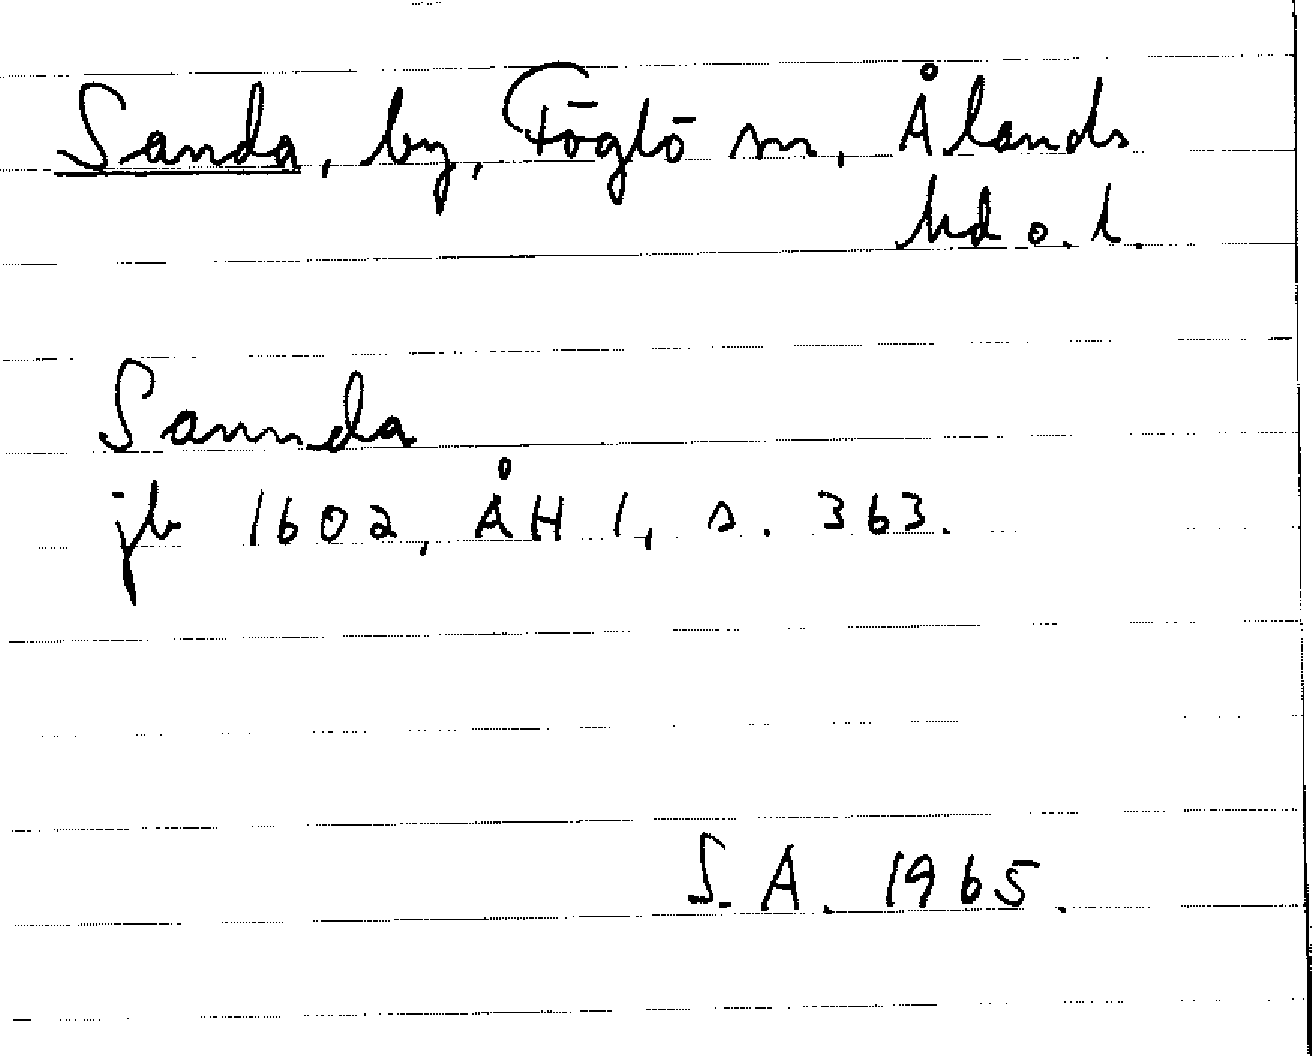 Sanda, by, Föglö sn, Ålands
hd o. l.
Sannda
jb 1602, ÅH 1, s. 363.
S. A. 1965.